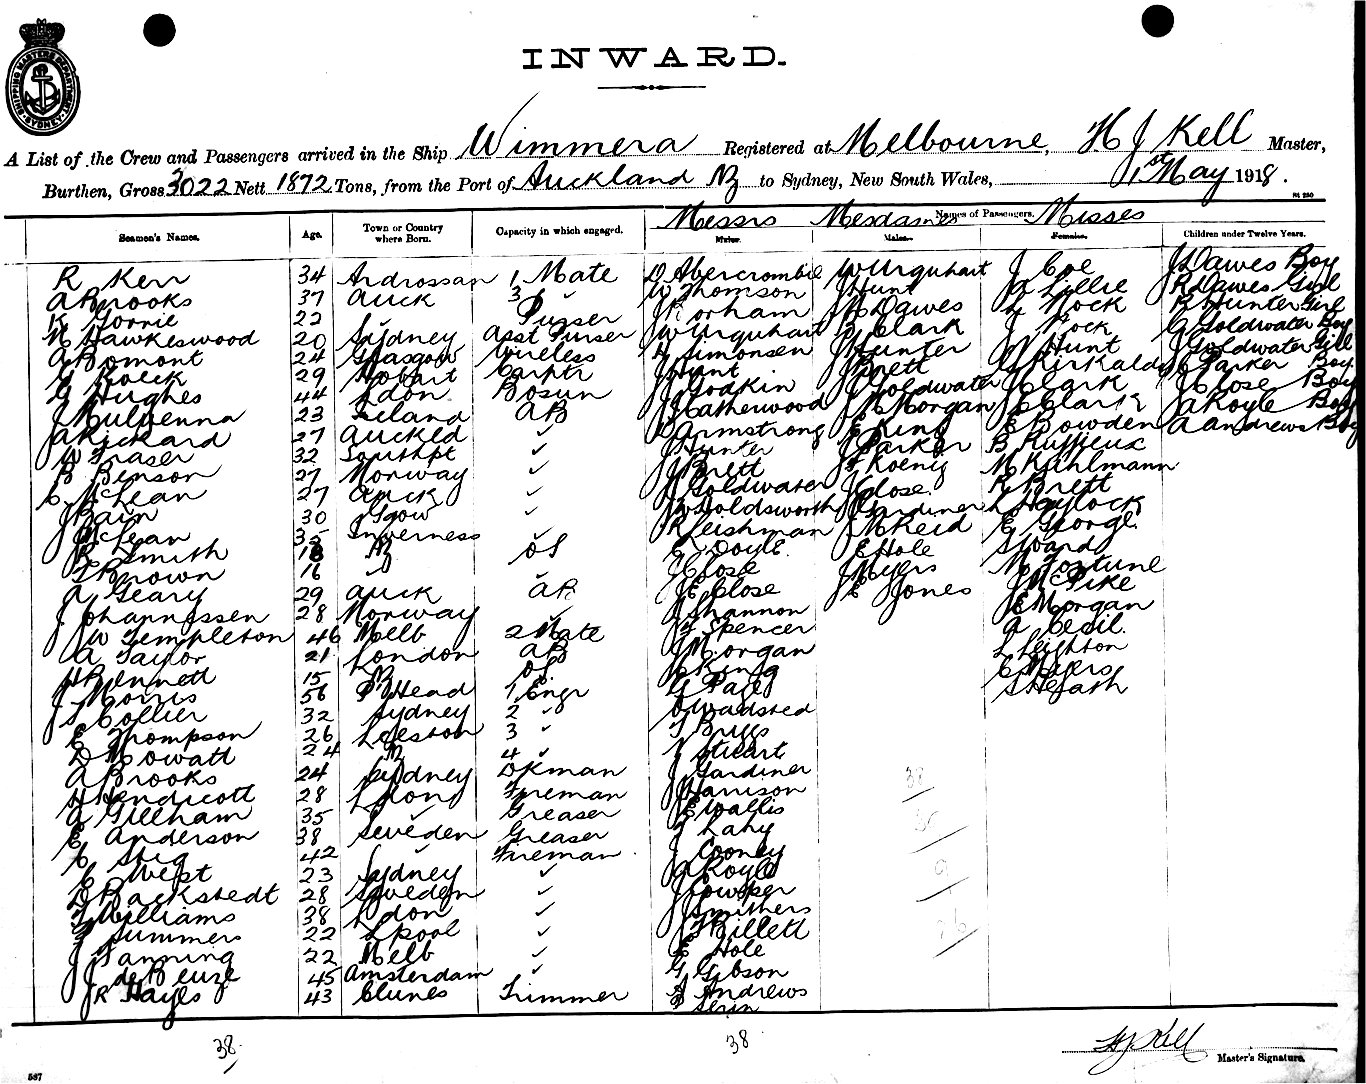 SHIPPING MASTERS DEPARTMENT SYDNEY
INWARD.
A List of the Crew and Passengers arrived in the Ship Wimmera Registered at Melbourne, H J Kell Master,
Burthen, Gross 3022 Nett 1872 Tons, from the Port of Auckland NZ to Sydney, New South Wales, 1st May 1918.
Messrs Mesdames Names of Passengers. Misses
Seamen's Names. Age. Town or Country where Born. Capacity in which engaged. Males. Males. Females. Children under Twelve Years.
R Kerr 34 Ardrossan 1 Mate D Abercrombie W Urquhart J Coe J Dawes Boy
A Brooks 37 Auck 3 " W Thomson J Hunt A Lillie R Dawes Girl
K Gorrie 22 " Purser J Korham J H Dawes L Rock R Hunter Girl
N Hawkeswood 20 Sydney Asst Purser W Urquhart B Clark J Rock G Goldwater Boy
A Bomont 24 Glasgow Wireless H Simonsen J Hunter N Hunt J Goldwater Girl
G Boeck 29 Hobart Carptr J Hunt J Brett G Kirkaldy C Parker Boy
G Hughes 44 Ldon Bosun J Godkin J Goldwater J Clark J Close Boy
J Mulpenna 23 Ireland AB J Catherwood J Morgan J C Clark A Royle Boy
A Rickard 27 Auckld " D Armstrong E King E Bowden A Andrews Boy
W Fraser 32 Southpt " J Hunter C Parker B Ruffieux
B Benson 27 Norway " J Brett J F Koenig M Kuhlmann
C McLean 27 Auck " J Goldwater J Close R Brett
J Bain 30 Ggow " J Holdsworth J Gardiner L Haylock
J McLean 35 Inverness " R Leishman J McReid G George
R Smith 18 NZ OS G Doyle E Hole S Ward
T Brown 16 " " J Close J Myers M Fortune
A Geary 29 Auck AB J E Close J E Jones J McPike
J Johannssen 28 Norway " J Shannon J E Morgan
J W Templeton 46 Melb 2 Mate J F Spencer A Cecil
A Taylor 21 London AB G Morgan L Leighton
H Bennett 15 NZ OS H King C Myers
J Morris 56 P Head 1 Engr G Page S Hefath
J S Collier 32 Sydney 2 " O Wadsted
E Thompson 26 Leeston 3 " T Briggs
D Mowatt 24 NZ 4 " J Stuart
A Brooks 24 Sydney Dkman J Gardiner
H Hendicott 28 Ldon Fireman J Harrison
A Gillham 35 " Greaser E Wallis
E Anderson 38 Sweden Greaser J Lahy
C Stig 42 " Fireman J Cooney
C West 23 Sydney " A Royle
D Backstedt 28 Sweden " J Cowper
T Williams 38 Ldon " J Smithers
F Summers 22 Lpool " J Billett
J Fanning 22 Melb " E Hole
J de Beuze 45 Amsterdam " G Gibson
J R Hayes 43 Clunes Trimmer G Andrews
38
38
9
26
38
38
H J Kell
Master's Signature.
587